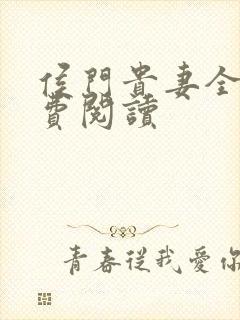 侯門貴妻全
費閱讀
青春從我愛你